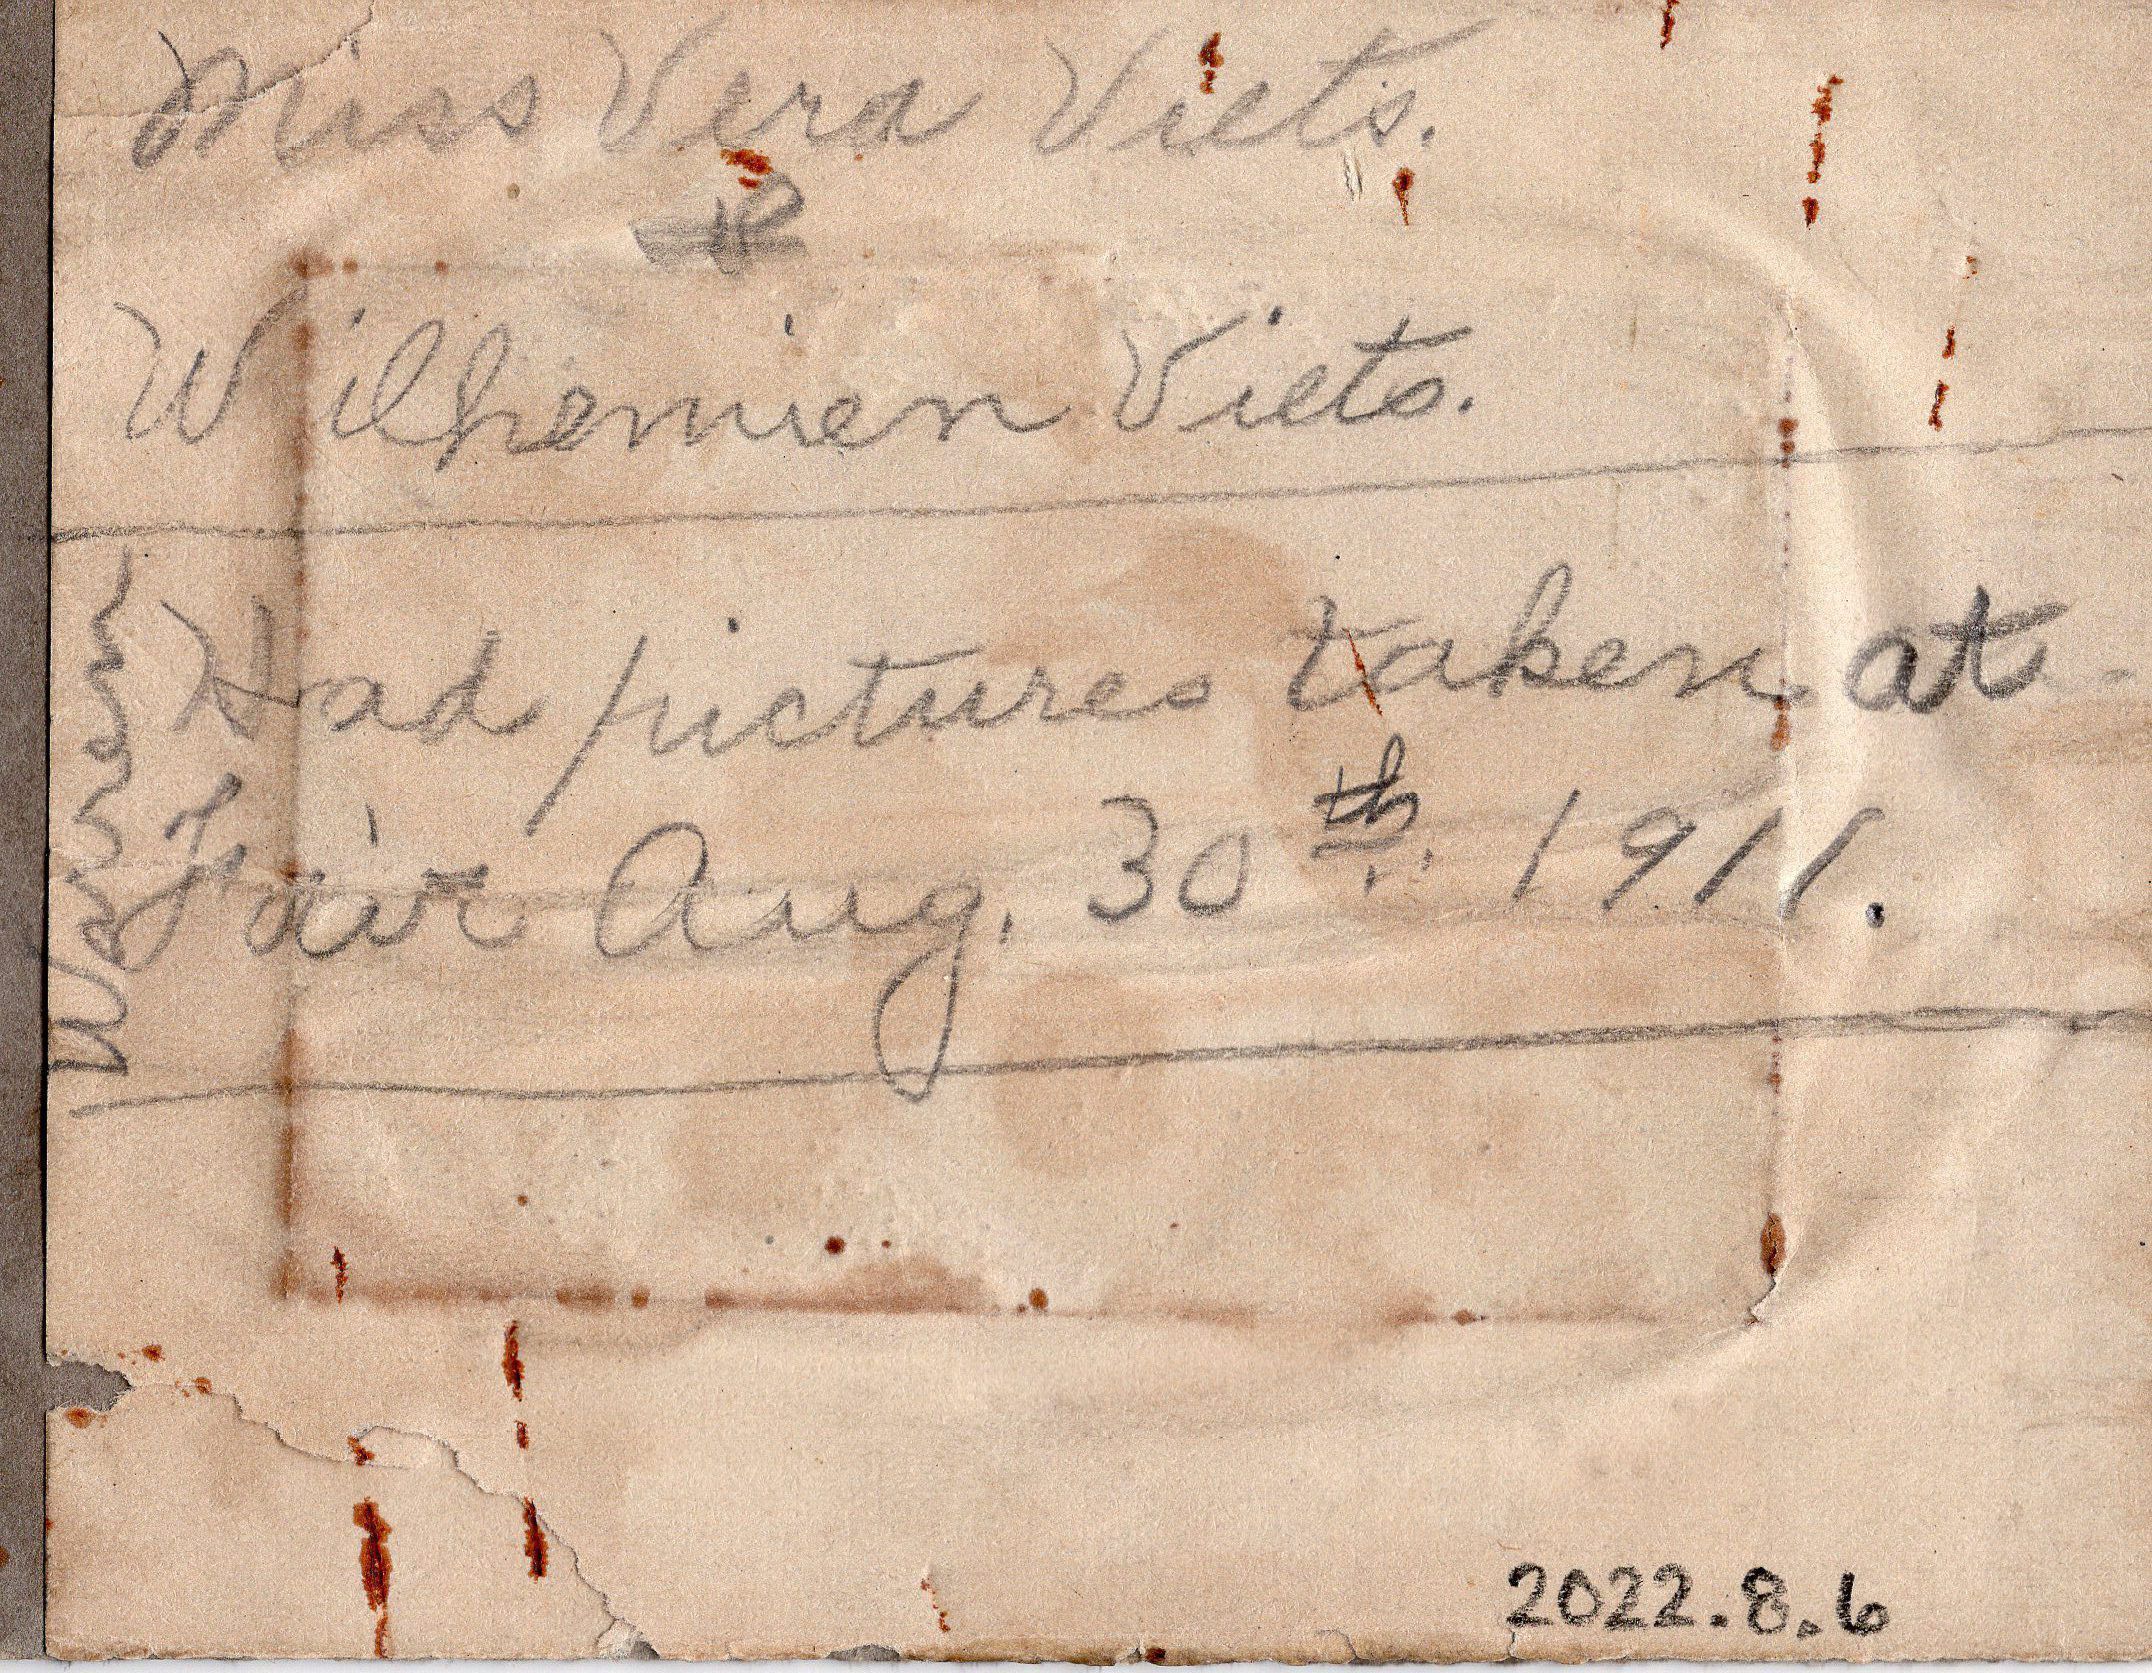 Miss Vera Viets.
&
Wilhemien Viets.
Warren
Had pictures taken at
Fair Aug. 30th. 1911.
2022.8.6